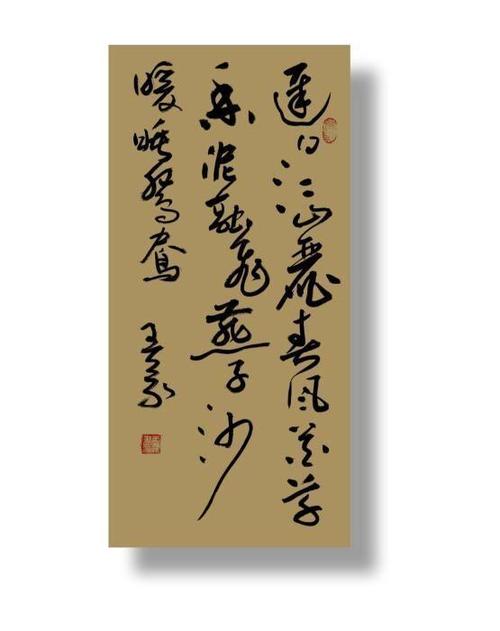 遲日江山麗春風花草
香泥融飛燕子沙
暖睡鴛鴦